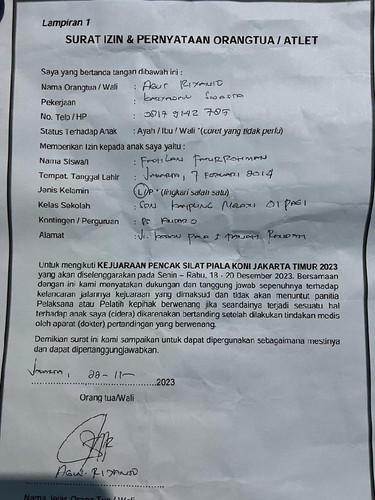 Lampiran 1
SURAT IZIN & PERNYATAAN ORANGTUA / ATLET
Saya yang bertanda tangan dibawah ini :
Nama Orangtua / Wali : AGUS RIYANTO
Pekerjaan : KARYAWAN SWASTA
No. Telo / HP : 0817 9142 785
Status Terhadap Anak : Ayah / Ibu / Wali *(coret yang tidak perlu)
Memberikan Izin kepada anak saya yaitu :
Nama Siswa/i : FATHURROHMAN
Tempat, Tanggal Lahir : JAKARTA, 7 FEBRUARI 2014
Jenis Kelamin : L/P *(lingkari salah satu)
Kelas Sekolah : SDN KAMPUNG MELAYU 01 PAGI
Kontingen / Perguruan : PS
Alamat : JL.
Untuk mengikuti KEJUARAAN PENCAK SILAT PIALA KONI JAKARTA TIMUR 2023
yang akan diselenggarakan pada Senin – Rabu, 18 - 20 Desember 2023. Bersamaan
dengan ini kami menyatakan dukungan dan tanggung jawab sepenuhnya terhadap
kelancaran jalannya kejuaraan yang dimaksud dan tidak akan menuntut panitia
Pelaksana atau Pelatih kepihak berwenang jika seandainya terjadi sesuatu hal
terhadap anak saya (cidera) dikarenakan bertanding setelah dilakukan tindakan medis
oleh aparat (dokter) pertandingan yang berwenang.
Demikian surat ini kami sampaikan untuk dapat dipergunakan sebagaimana mestinya
dan dapat dipertanggungjawabkan.
Jakarta, 28 - 11 - 2023
Orang tua/Wali
AGUS RIYANTO